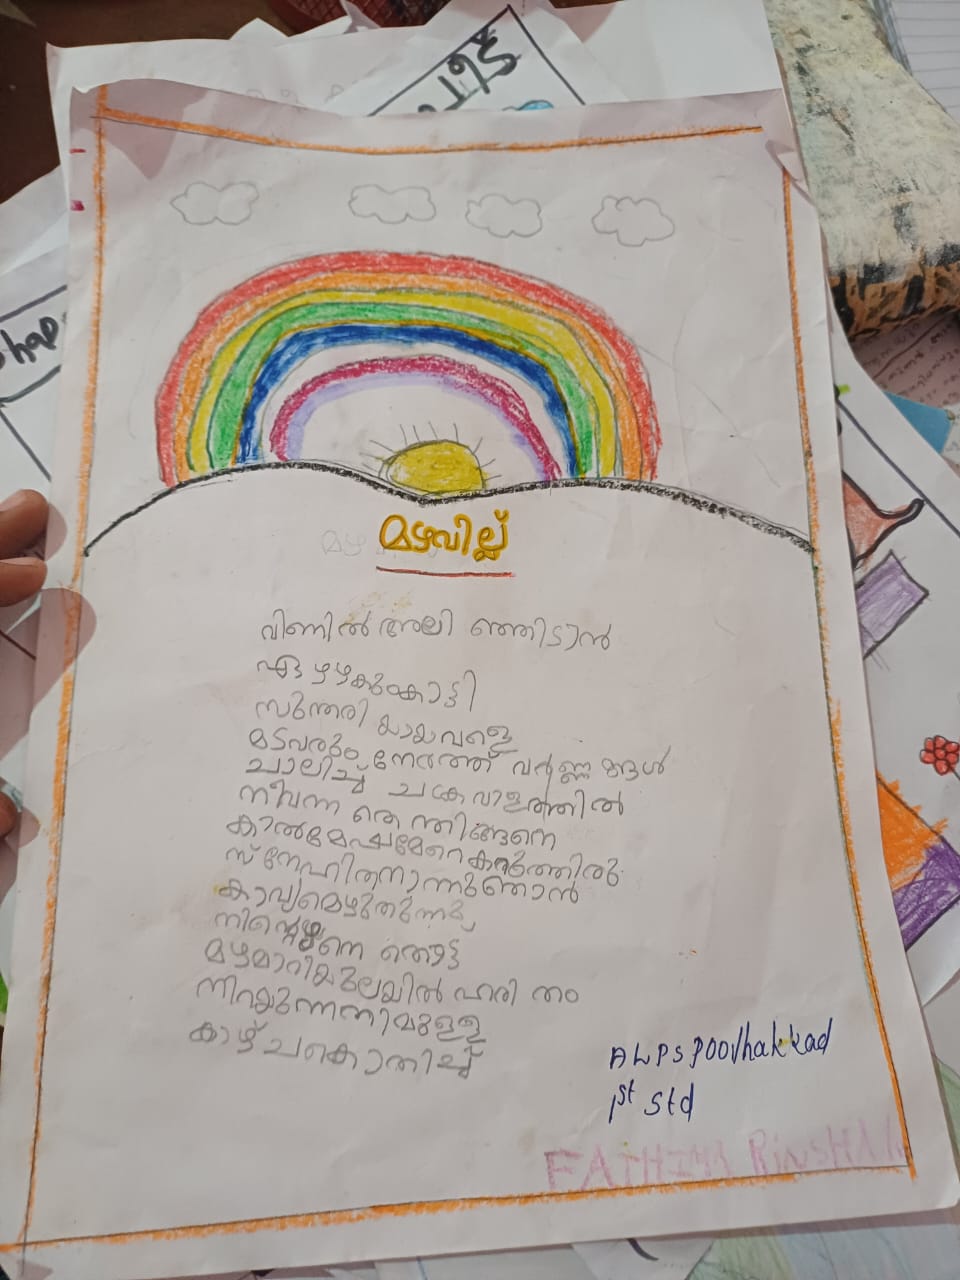 മഴവില്ല്
വിണ്ണിൽ അലി ഞ്ഞിടാൻ
ഏഴഴകുകാട്ടി
സുന്ദരി യായവളെ
മടവരും നേരത്ത് വർണ്ണ ങ്ങൾ
ചാലിച്ച് ചക്രവാളത്തിൽ
നീവന്ന തെ ന്തിങ്ങനെ
സ് നേഹിതനാന്നുഞാൻ
കാവ്യമെഴുതുന്നു
തൊട്ട്
മഴമാറിയുലയിൽ ഹരി തം
നിറയുന്നനിമുളള
കാഴ് ചകൊതിച്ച്
ALPS poovhakkad
1st std
FATHIMA RINSHA